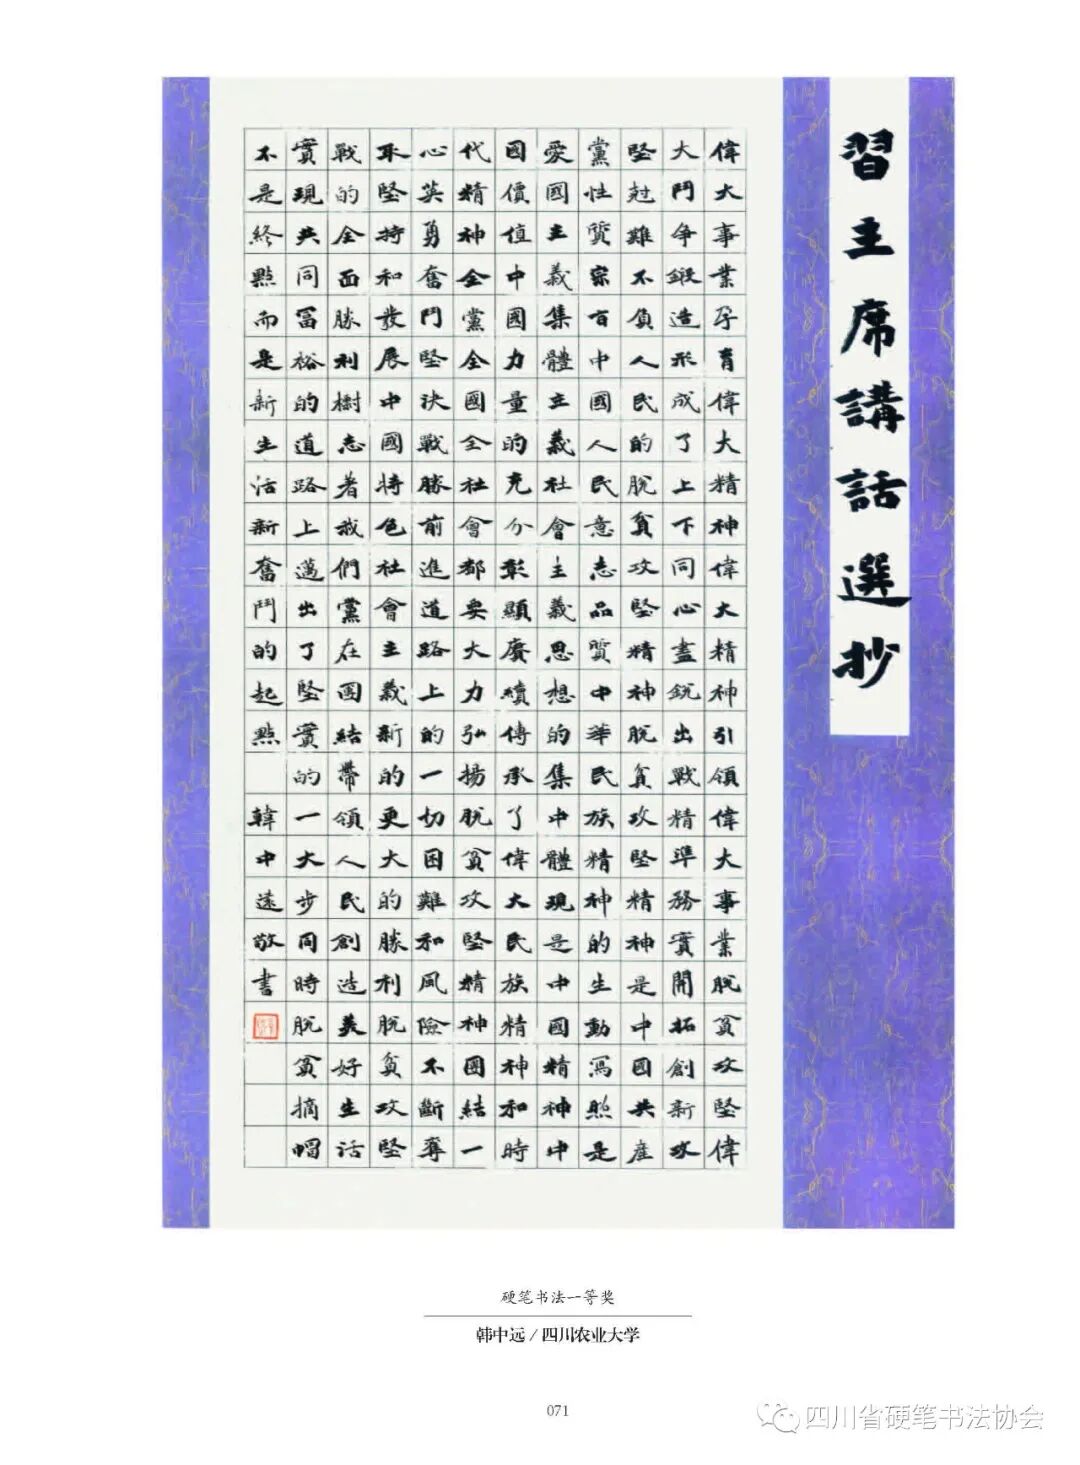 習主席講話選抄
偉大事業孕育偉大精神偉大精神引領偉大事業脫貧攻堅偉
大鬥爭鍛造形成了上下同心盡銳出戰精準務實開拓創新攻
堅尅難不負人民的脫貧攻堅精神脫貧攻堅精神是中國共産
黨性質宗旨中國人民意志品質中華民族精神的生動寫照是
愛國主義集體主義社會主義思想的集中體現是中國精神中
國價值中國力量的充分彰顯賡續傳承了偉大民族精神和時
代精神全黨全國全社會都要大力弘揚脫貧攻堅精神團結一
心英勇奮鬥堅決戰勝前進道路上的一切困難和風險不斷奪
取堅持和發展中國特色社會主義新的更大的勝利脫貧攻堅
戰的全面勝利標志著我們黨在團結帶領人民創造美好生活
實現共同富裕的道路上邁出了堅實的一大步同時脫貧摘帽
不是終點而是新生活新奮鬥的起點 韓中遠敬書
硬笔书法一等奖
韩中远/四川农业大学
071
四川省硬笔书法协会